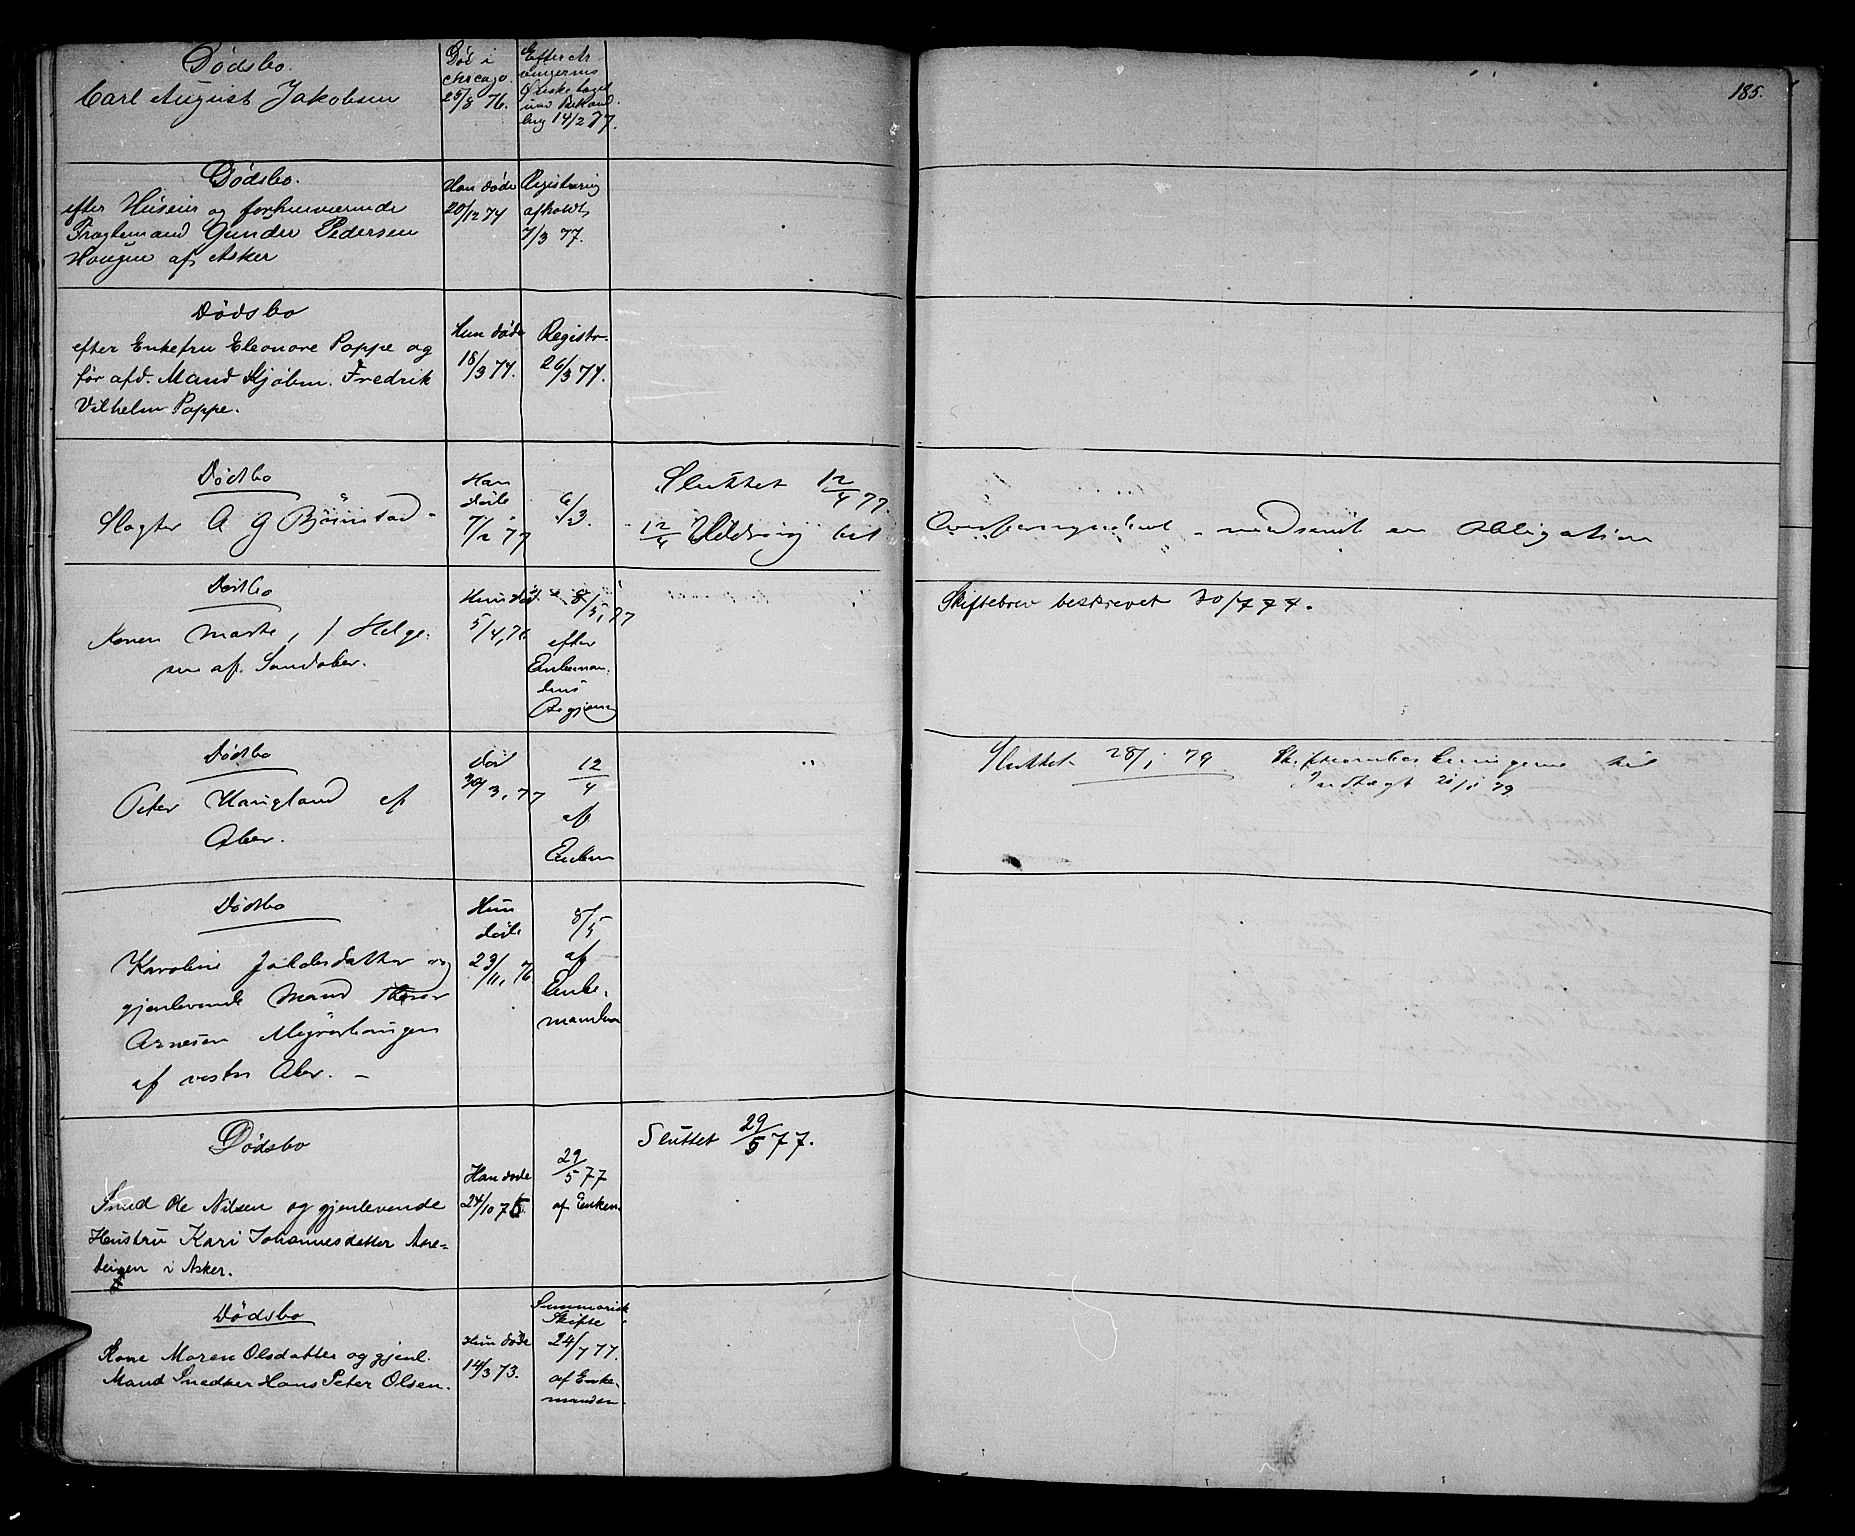 185.
Dødsbo.
Carl August Jakobsen
Død i
Chicago.
25/8 76.
Efter Ar
vingernes
Ønske taget
under Behand
ling 14/2 77.
Dødsbo.
efter Huseier og forhenværende
Fragtemand Gunder Pedersen
Haugen af Asker
Han døde
20/12 74
Registrering
afholdt
7/3 77.
Dødsbo
efter Enkefru Eleonore Poppe og
før afd. Mand Kjøbm. Fredrik
Vilhelm Poppe.
Hun døde
18/3 77.
Registr.
26/3 77.
Dødsbo
Slagter A G Bjørnstad
Han
døde
7/2 77
6/3.
Sluttet 12/4 77.
12/4 til
Overformynderiet medsendt en Obligation
Dødsbo
Konen Marte, / Helge
sen af Sandaker.
Hun død
5/4, 76
8/5, 77
efter
Enkeman
dens
Begjæring
Skiftebrev beskrevet 30/7 77.
Dødsbo
Peter Haugland af
Aker.
Død
30/3, 77
12/4
af
Enken
Sluttet 28/1 79
til
Indtægt 21/1 79
Dødsbo
Karoline Jakobsdatter og
gjenlevende Mand Thorer
Arnesen
af vestre Aker. —
Hun
døde
23/11, 76
8/5
af
Enke-
manden
Dødsbo
Smed Ole Nilsen og gjenlevende
Hustru Kari Johannesdatter
i Asker.
Han døde
24/10 75.
29/5 77
af Enken
Sluttet 29/5 77.
Dødsbo
Kone Maren Olsdatter og gjenl.
Mand Snedker Hans Peter Olsen.
Hun døde
14/3 73.
Summarisk
Skifte
24/7 77.
af Enke-
manden.